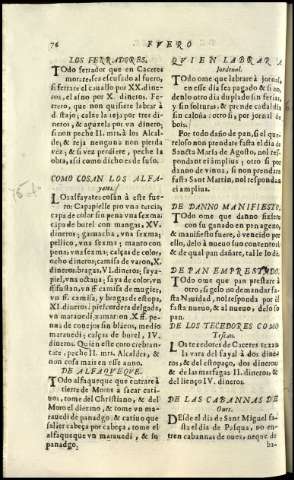 76
FVERO
LOS FERRADORES.
TOdo ferrador que en Caceres
morare, sea escusado al fuero,
si ferrare el cauallo por XX. dine-
ros, el asno por X. dineros. Fer-
rero, que non quisiere labrar à
ros; & aguzela por vn dinero,
si non peche II. mrs. à los Alcal-
de, & reja nenguna non pierda
vez; & si vez perdire, peche la
obra, assi como dicho es de suso.
COMO COSAN LOS ALFA-
yates.
LOs alfayates cosan à este fue-
ro: Capapielle por vna tercia,
capa de color sin pena vna sexma;
capa de burel con mangas, XV.
dineros; garnacha, vna sexma;
pellico, vna sexma; manto con
pena, vna sexma; calças de color,
ocho dineros; camisa de varon, X.
dineros; bragas VI. dineros; saya-
piel, vna octaua; saya de color, vn
camisa, y bragas de estopa,
XI. dineros; piel cordera delgada,
pena de conejos sin blaeos, medio
marauedi; calças de burel, IV.
dineros. Quien este coto crebran-
tare, peche II. mrs. Alcaldes, &
non cosa mais en esse anno.
DE ALFAQUEQVE.
TOdo alfaqueque que entrare à
tierra de Moros à sacar cati-
uos, tome del Christiano, & del
Moro el diezmo, & tome vn ma-
rauedi de panadgo, & catiuo que
salier cabeça por cabeça, tome el
alfaqueque vn marauedi, & so
panadgo.
QVIEN LABRAR A
Jordenal.
TOdo ome que labrare à jornal,
en esse dia sea pagado & si non,
denlo otro dia duplado sin ferias,
y sin solturas, & prende cada dia
sin caloña; otrosi, por jornal de
bois.
Por todo daño de pan, si el que-
reloso non prendare fasta el dia de
Sancta Maria de Agosto, nol respon-
dant ei amplius; otro si por
danno de vinna, si non prendare
fasta Sant Martin, nol respondan
ei amplius.
DE DANNO MANIFIESTO.
TOdo ome que danno fiziere
con su ganado en pan ageno,
& manifiesto fuere, ò vencido por
ello, delo à nuevo suo contentor;
& de qual pan dañare, tal lo dé.
DE PAN EMPRESTADO.
TOdo ome que pan prestare à
otro, si gelo no demandar fas-
ta Navidad, nol responda por el
fasta nuevo, & al nuevo, delo so
pan.
DE LOS TECEDORES COMO
Tescan.
LOs tecedores de Caceres texan
la vara del sayal à dos dine-
ros, & del estopaço, dos dineros
& de las marfagas II. dineros; &
del lienço IV. dineros.
DE LAS CABANNAS DE
Oues.
DEsde el dia de Sant Miguel fas-
ta dia de Pasqua, no en-
tren cabannas de oues; neque de
ba-